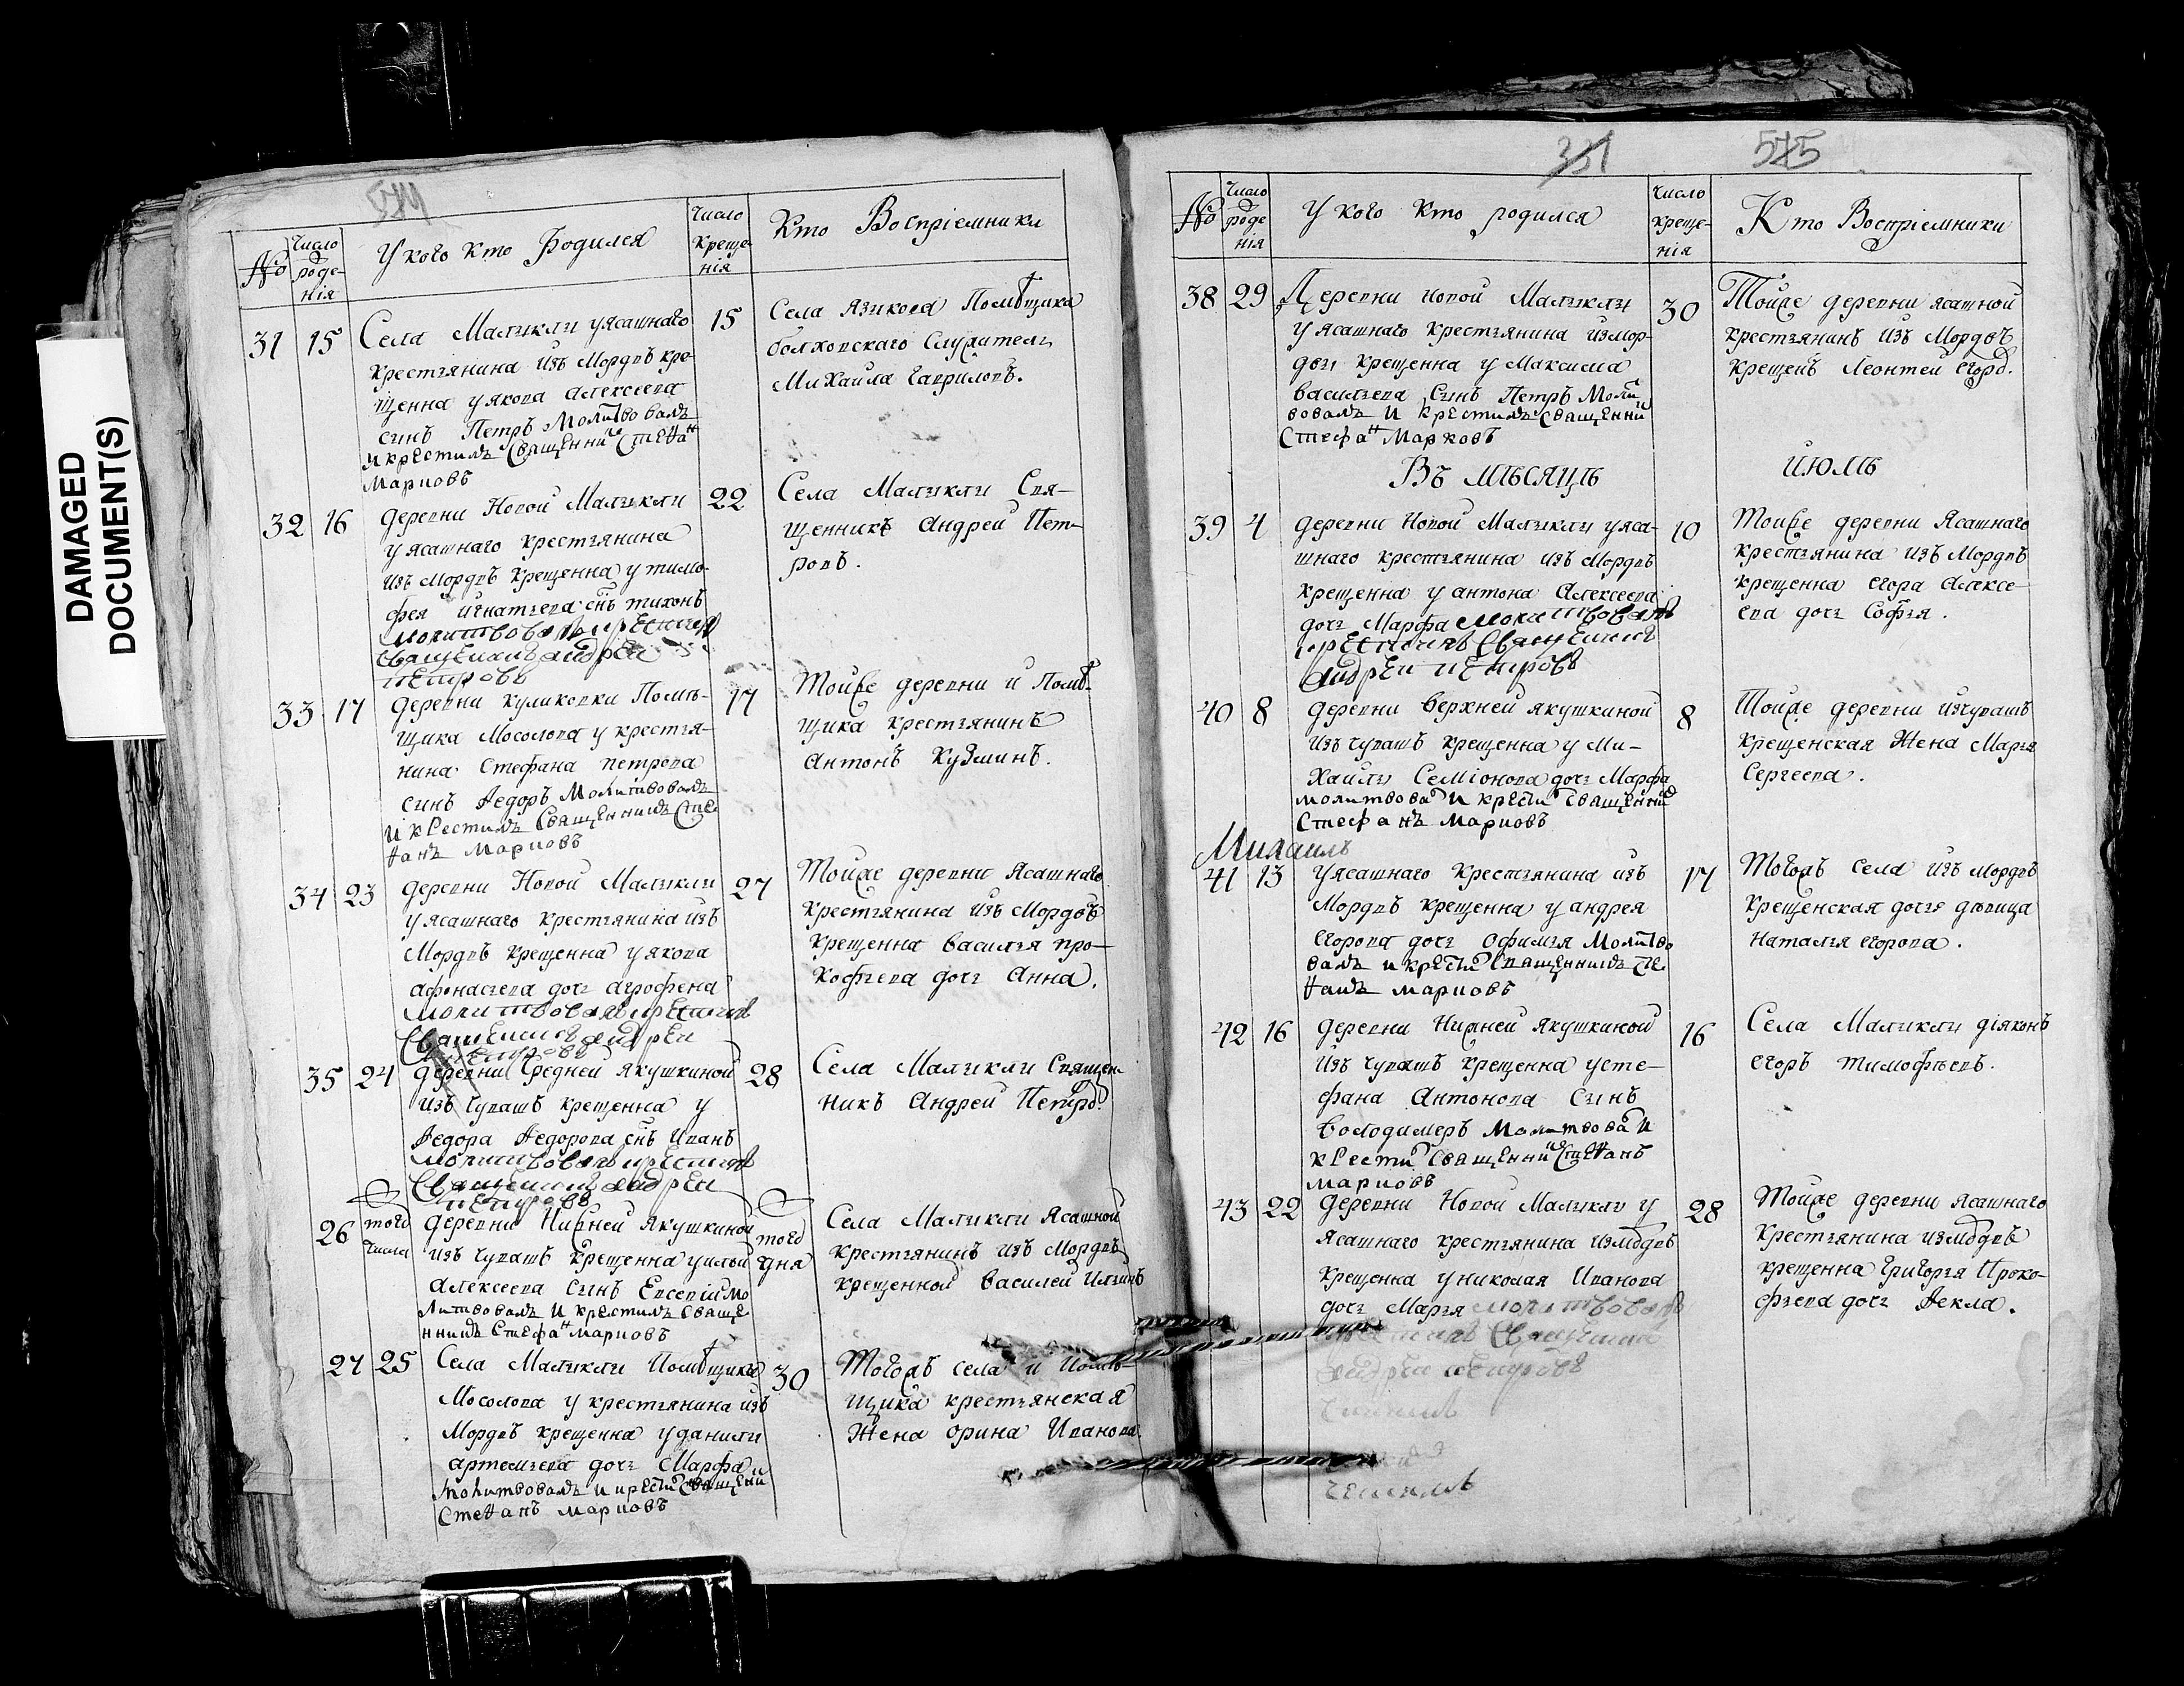 DAMAGED
DOCUMENT(S)
574
№
Число
роде-
нія
У кого кто Родился
Число
Креще-
нія
Кто Воспріемники
31
15
Села Малыкли уясашнаго
крестьянина изъ Мордвъ кре-
щенна уякова алексеева
сынъ Петръ Молитвовалъ
и крестилъ Священникъ Стефанъ
Марковъ
15
Села Языкова Помѣщика
болховскаго Служитель
Михаила Гавриловъ.
32
16
деревни Новой Малыкли
уясашнаго крестьянина
изъ Мордвъ крещенна у тимо-
фея игнатьева снъ тихонъ
молитвовалъ и крестилъ
Священникъ андреи
петровъ
22
Села Малыкли Свя-
щенникъ Андреи Пет-
ровъ.
33
17
деревни куликовки Помѣ-
щика Мосолова у крестья-
нина Стефана петрова
сынъ Ѳедоръ Молитвовалъ
и крестилъ Священникъ Сте
Ѳанъ Марковъ
17
Тойже деревни и Помѣ-
щика крестьянинъ
Антонъ Кузминъ.
34
23
деревни Новой Малыкли
уясашнаго крестьянина изъ
Мордвъ крещенна уякова
афонасьева дочь агрофена
молитвовалъ и крестилъ
Священникъ андреи
петровъ
27
Тойже деревни Ясашнаго
крестьянина изъ Мордвъ
крещенна василья про-
кофьева дочь Анна.
35
24
деревни Средней Якушкиной
изъ Чувашъ крещенна у
Ѳедора Ѳедорова снъ Иванъ
молитвовалъ и крестилъ
Священникъ андреи
петровъ
28
Села Малыкли Священ-
никъ Андреи Петро.
26
того
числа
деревни Нижней Якушкиной
изъ Чувашъ крещенна уильи
Алексеева Сынъ Евсевіи мо
литвовалъ и крестилъ Свяще
нникъ Стефанъ Марковъ
того
дня
Села Малыкли Ясашной
крестьянинъ изъ Мордвъ
крещенной василей Ильинъ
27
25
Села Малыкли Помѣщика
Мосолова у крестьянина изъ
Мордвъ крещенна уданилы
артемьева дочь Марфа
Молитвовалъ и крести Священи
СтеѲанъ Марковъ
30
Тогожъ села и Помѣ-
щика крестьянская
Жена орина Иванова
331
575
№
Число
роде
нія
У кого кто родился
Число
креще-
нія
Кто Воспріемники
38
29
Деревни новой Малыклы
уясашнаго крестьянина измор-
двы крещенна у Максима
васильева Сынъ Петръ Моли
вовалъ и крестилъ Священни
Стефанъ Марковъ
30
Тойже деревни ясашной
крестьянинъ изъ Мордвъ
крещенъ Леонтей егоро.
Въ МѢСЯЦѢ
ИЮЛѢ
39
4
деревни Новой Малыклы уяса-
шнаго крестьянина изъ Мордвъ
крещенна уантона Алексеева
дочь Марфа молитвовалъ
крестилъ Священникъ
андреи петровъ
10
Тойже деревни Ясашнаго
крестьянина изъ Мордвъ
крещенна егора Алексе-
ева дочь Софья.
40
8
деревни верхней якушкиной
изъ чувашъ крещенна у Ми-
хайлы Семіонова дочь Марфа
молитвова и крести Священни
Стефанъ Марковъ
8
Тойже деревни изчувашъ
крещенская Жена Марья
Сергеева.
Михаилъ
41
13
Уясашнаго крестьянина изъ
Мордвъ крещенна уандрея
егорова дочь офимья Молитво
валъ и крести Священникъ Сте
Ѳанъ Марковъ
17
Тогожъ села изъ мордвъ
крещенская дочь дѣвица
наталья егорова.
42
16
деревни Нижней якушкиной
изъ чувашъ крещенна усте-
фана Антонова Сынъ
володимеръ Молитвова и
крести Священни СтеѲанъ
Марковъ
16
Села Малыкли діяконъ
егоръ тимофѣевъ.
43
22
деревни Новой Малыкли у
Ясашнаго крестьянина измордвъ
крещенна униколая Иванова
дочь Марья молитвовалъ
крестилъ Священникъ
андреи петровъ
28
Тойже деревни ясашнаго
крестьянина измордвъ
крещенна григорья Проко-
фьева дочь Ѳекла.